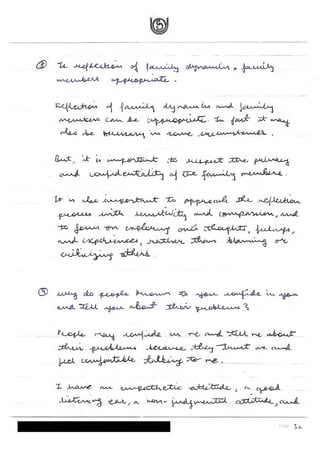 ② Is reflection of family dynamics & family
members appropriate.
Reflection of family dynamics and family
members can be appropriate. In fact it may
also be necessary in some circumstances.
But, it is important to respect the privacy
and confidentiality of the family members.
It is also important to approach the reflection
process with sensitivity and compassion, and
to focus on exploring one's thoughts, feelings,
and experiences, rather than blaming or
criticizing others.
③ Why do people known to you confide in you
and tell you about their problems?
People may confide in me and tell me about
their problems because they trust me and
feel comfortable talking to me.
I have an empathetic attitude, a good
listening ear, a non-judgmental attitude, and